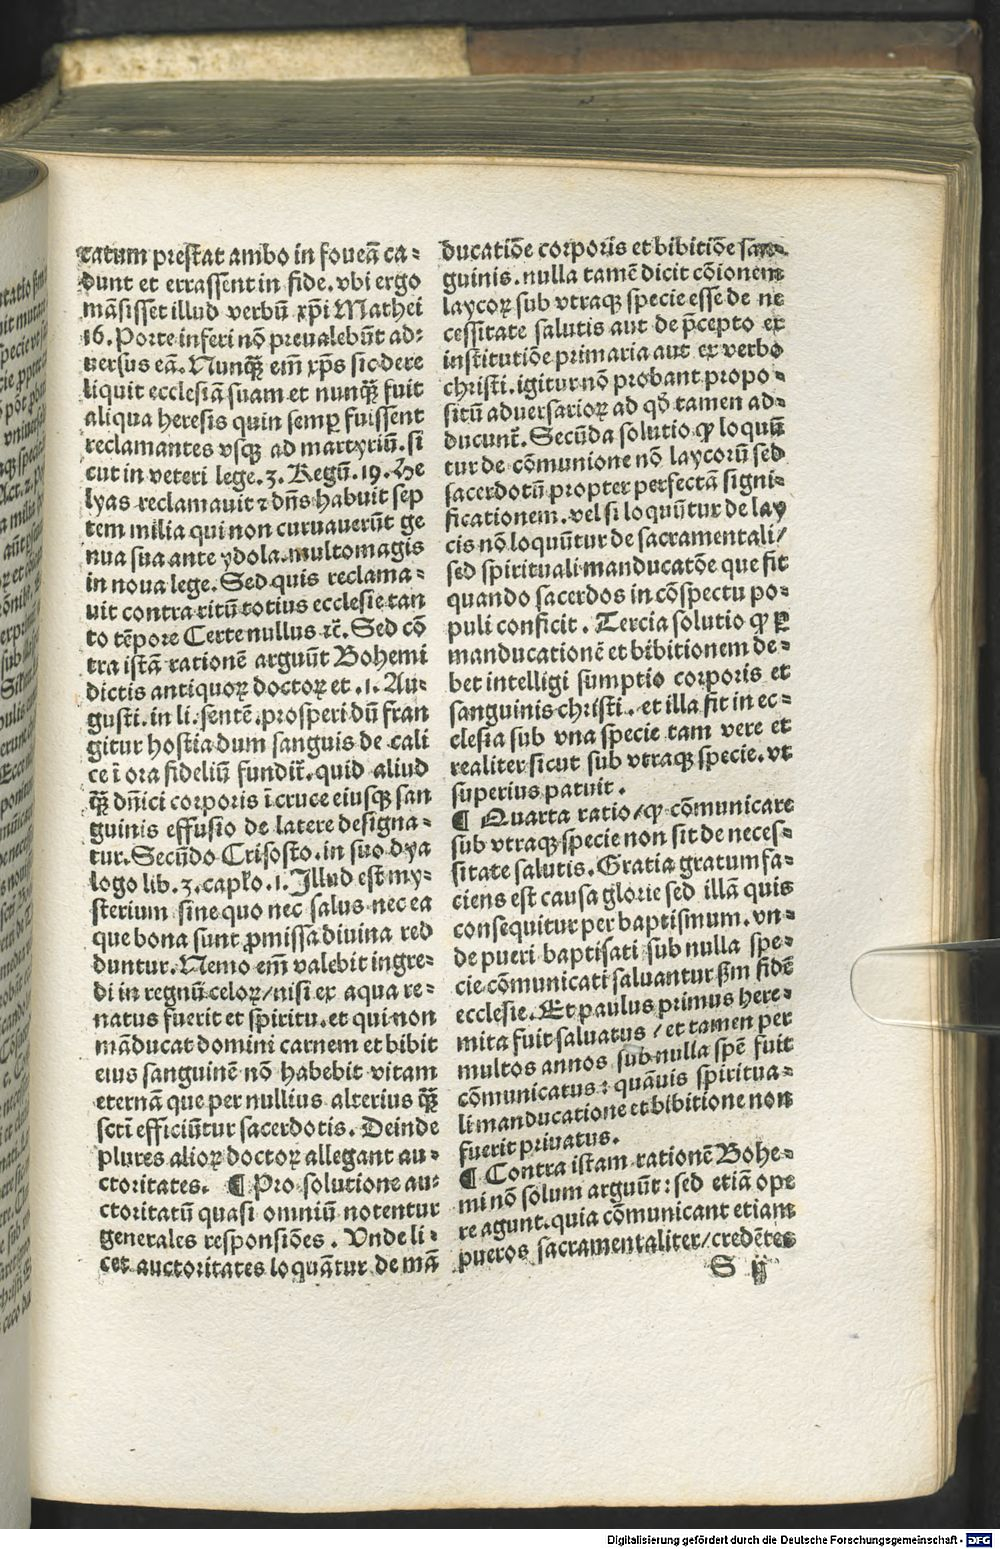 catum prestat ambo in foueã ca-
dunt et errassent in fide. vbi ergo
mãsisset illud verbũ xp̃i Mathei
16. Porte inferi nõ preualebũt ad-
uersus eã. Nunqꝫ̃ em̃ xp̃s sic dere
liquit ecclesiã suam et nunqꝫ̃ fuit
aliqua heresis quin semꝑ fuissent
reclamantes vsqꝫ ad martyriũ. si
cut in veteri lege. 3. Regũ. 19. He
lyas reclamauit ⁊ dñs habuit sep
tem milia qui non curuauerũt ge
nua sua ante ydola. multomagis
in noua lege. Sed quis reclama-
uit contra ritũ totius ecclesie tan
to tẽpore Certe nullus ⁊c̃. Sed cõ
tra istã rationẽ arguũt Bohemi
dictis antiquoꝝ doctoꝝ et .1. Au-
gusti. in li. sentẽ. prosperi dũ fran
gitur hostia dum sanguis de cali
ce ĩ ora fideliũ fundit̃. quid aliud
qꝫ̃ dñici corporis ĩ cruce eiusqꝫ san
guinis effusio de latere designa-
tur. Secũdo Crisosto. in suo dya
logo lib. 3. capło .1. Illud est my-
sterium sine quo nec salus nec ea
que bona sunt ꝓmissa diuina red
duntur. Nemo em̃ valebit ingre-
di in regnũ celoꝝ/ nisi ex aqua re-
natus fuerit et spiritu. et qui non
mãducat domini carnem et bibit
eius sanguinẽ nõ habebit vitam
eternã que per nullius alterius qꝫ̃
scti efficiũtur sacerdotis. Deinde
plures alioꝝ doctoꝝ allegant au-
ctoritates. ¶ Pro solutione au-
ctoritatũ quasi omniũ notentur
generales responsiões. Unde li-
cet auctoritates loquãtur de mã
ducatiõe corporis et bibitiõe san-
guinis. nulla tamẽ dicit cõionem
laycoꝝ sub vtraqꝫ specie esse de ne
cessitate salutis aut de p̃cepto ex
institutiõe primaria aut ex verbo
christi. igitur nõ probant propo-
sitũ aduersarioꝝ ad qḋ tamen ad-
ducunt̃. Secũda solutio ꝙ loquũ
tur de cõmunione nõ laycorũ sed
sacerdotũ propter perfectã signi-
ficationem. vel si loquũtur de lay
cis nõ loquũtur de sacramentali/
sed spirituali manducatõe que fit
quando sacerdos in cõspectu po-
puli conficit. Tercia solutio ꝙ ꝑ
manducationẽ et bibitionem de-
bet intelligi sumptio corporis et
sanguinis christi. et illa fit in ec-
clesia sub vna specie tam vere et
realiter sicut sub vtraqꝫ specie. vt
superius patuit.
¶ Quarta ratio/ ꝙ cõmunicare
sub vtraqꝫ specie non sit de neces-
sitate salutis. Gratia gratum fa-
ciens est causa glorie sed illã quis
consequitur per baptismum. vn-
de pueri baptisati sub nulla spe-
cie cõmunicati saluantur ẜm fidẽ
ecclesie. Et paulus primus here-
mita fuit saluatus / et tamen per
multos annos sub nulla spẽ fuit
cõmunicatus: quãuis spiritua-
li manducatione et bibitione non
fuerit priuatus.
¶ Contra istam rationẽ Bohe-
mi nõ solum arguũt: sed etiã ope
re agunt. quia cõmunicant etiam
pueros sacramentaliter/ credẽtes
S ij
Digitalisierung gefördert durch die Deutsche Forschungsgemeinschaft - DFG